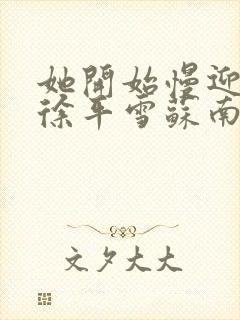 她開始慢迎
徐平雪蘇南
文夕大大